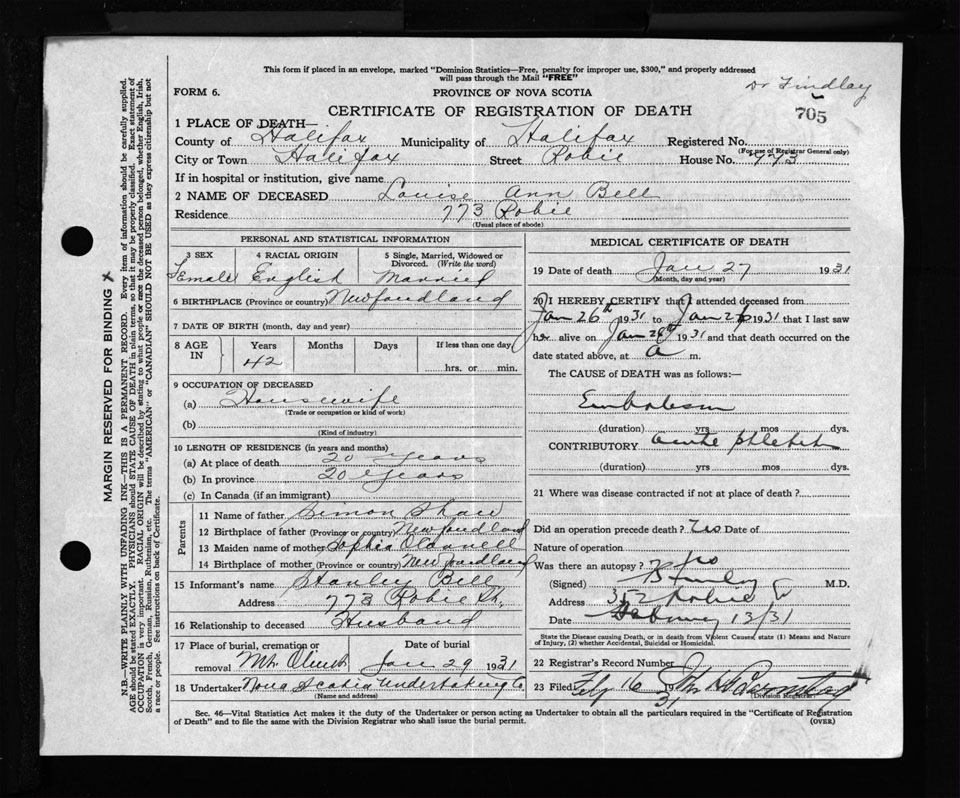 This form if placed in an envelope, marked "Dominion Statistics—Free, penalty for improper use, $300," and properly addressed
will pass through the Mail "FREE"
Dr Findlay
FORM 6.
PROVINCE OF NOVA SCOTIA
CERTIFICATE OF REGISTRATION OF DEATH
705
1 PLACE OF DEATH—
County of Halifax Municipality of Halifax Registered No.
(For use of Registrar General only)
City or Town Halifax Street Robie House No. 773
If in hospital or institution, give name
2 NAME OF DECEASED Louise Ann Bell
Residence 773 Robie
(Usual place of abode)
PERSONAL AND STATISTICAL INFORMATION
3 SEX 4 RACIAL ORIGIN 5 Single, Married, Widowed or Divorced. (Write the word)
Female English Married
6 BIRTHPLACE (Province or country) Newfoundland
7 DATE OF BIRTH (month, day and year)
8 AGE IN Years Months Days If less than one day,
42 hrs. or min.
9 OCCUPATION OF DECEASED
(a) Housewife
(Trade or occupation or kind of work)
(b)
(Kind of industry)
10 LENGTH OF RESIDENCE (in years and months)
(a) At place of death 20 years
(b) In province 20 years
(c) In Canada (if an immigrant)
Parents
11 Name of father Simon Shaw
12 Birthplace of father (Province or country) Newfoundland
13 Maiden name of mother Sophia
14 Birthplace of mother (Province or country) Newfoundland
15 Informant's name Stanley Bell
Address 773 Robie St,
16 Relationship to deceased Husband
17 Place of burial, cremation or removal Date of burial
Mt Olivet Jan 29 1931
18 Undertaker Nova Scotia Undertaking Co
(Name and address)
MEDICAL CERTIFICATE OF DEATH
19 Date of death Jan 27 1931
(Month, day and year)
20 I HEREBY CERTIFY that I attended deceased from
Jan 26th 1931 to Jan 26 1931 that I last saw
her alive on Jan 26th 1931 and that death occurred on the
date stated above, at a m.
The CAUSE of DEATH was as follows:—
Embolism
(duration) yrs mos dys.
CONTRIBUTORY acute
(duration) yrs mos dys.
21 Where was disease contracted if not at place of death?
Did an operation precede death? Date of
Nature of operation
Was there an autopsy?
(Signed) M.D.
Address 352 Robie St
Date February 13/31
State the Disease causing Death, or in death from Violent Causes, state (1) Means and Nature
of Injury, (2) whether Accidental, Suicidal or Homicidal.
22 Registrar's Record Number
23 Filed Feby 16 1931
Division Registrar
Sec. 46—Vital Statistics Act makes it the duty of the Undertaker or person acting as Undertaker to obtain all the particulars required in the "Certificate of Registration
of Death" and to file the same with the Division Registrar who shall issue the burial permit.
(OVER)
MARGIN RESERVED FOR BINDING
N.B.—WRITE PLAINLY WITH UNFADING INK—THIS IS A PERMANENT RECORD. Every item of information should be carefully supplied.
AGE should be stated EXACTLY. PHYSICIANS should STATE CAUSE OF DEATH in plain terms, so that it may be properly classified. Exact statement of
OCCUPATION is very important. RACIAL ORIGIN will be described by stating to what people or race the deceased person belonged, whether English, Irish,
Scotch, French, German, Russian, Ruthenian, etc. The terms "AMERICAN" or "CANADIAN" SHOULD NOT BE USED as they express citizenship but not
a race or people. See instructions on back of Certificate.